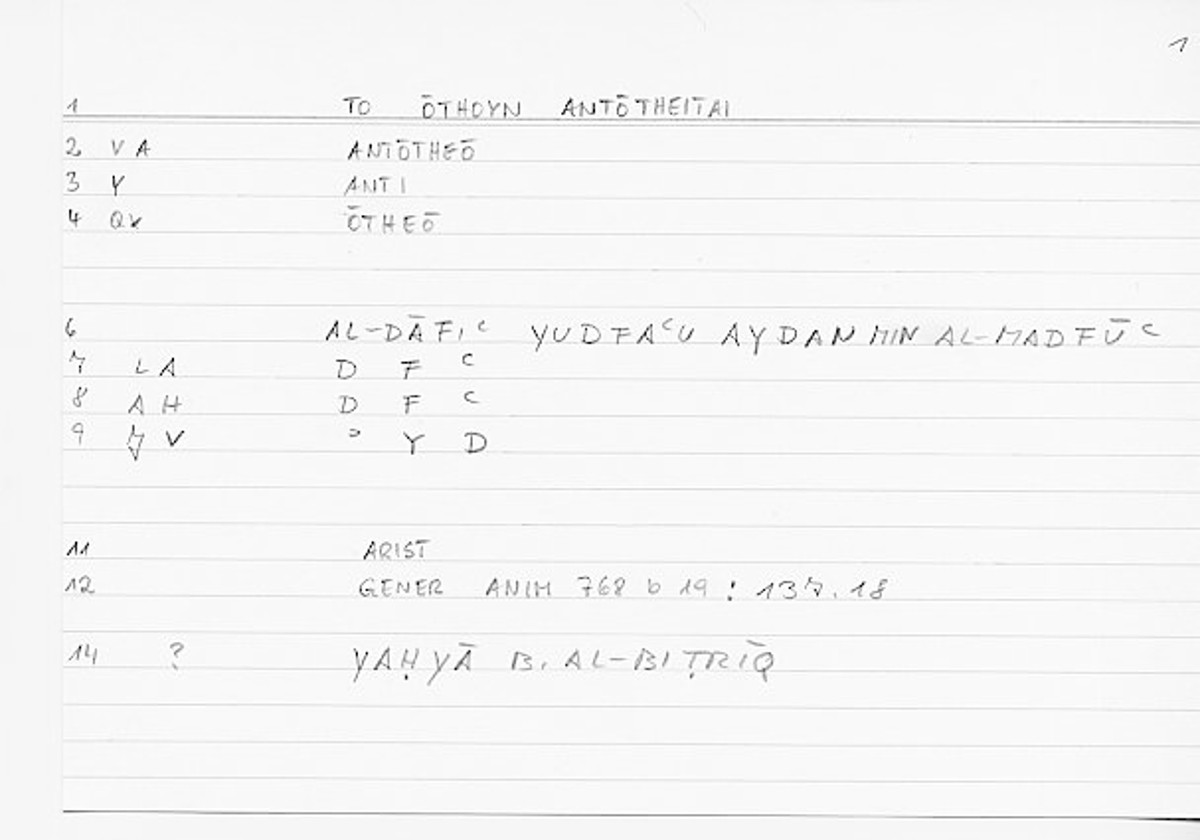 1
1 TO ŌTHOYN ANTŌTHEITAI
2 V A ANTŌTHEŌ
3 Y ANTI
4 QV ŌTHEŌ
6 AL-DĀFIʿ YUDFAʿU AYDAN MIN AL-MADFŪʿ
7 LA D F ʿ
8 A H D F ʿ
9 V ʾ Y D
11 ARIST
12 GENER ANIM 768 b 19 : 137.18
14 ? YAḤYĀ B. AL-BIṬRĪQ